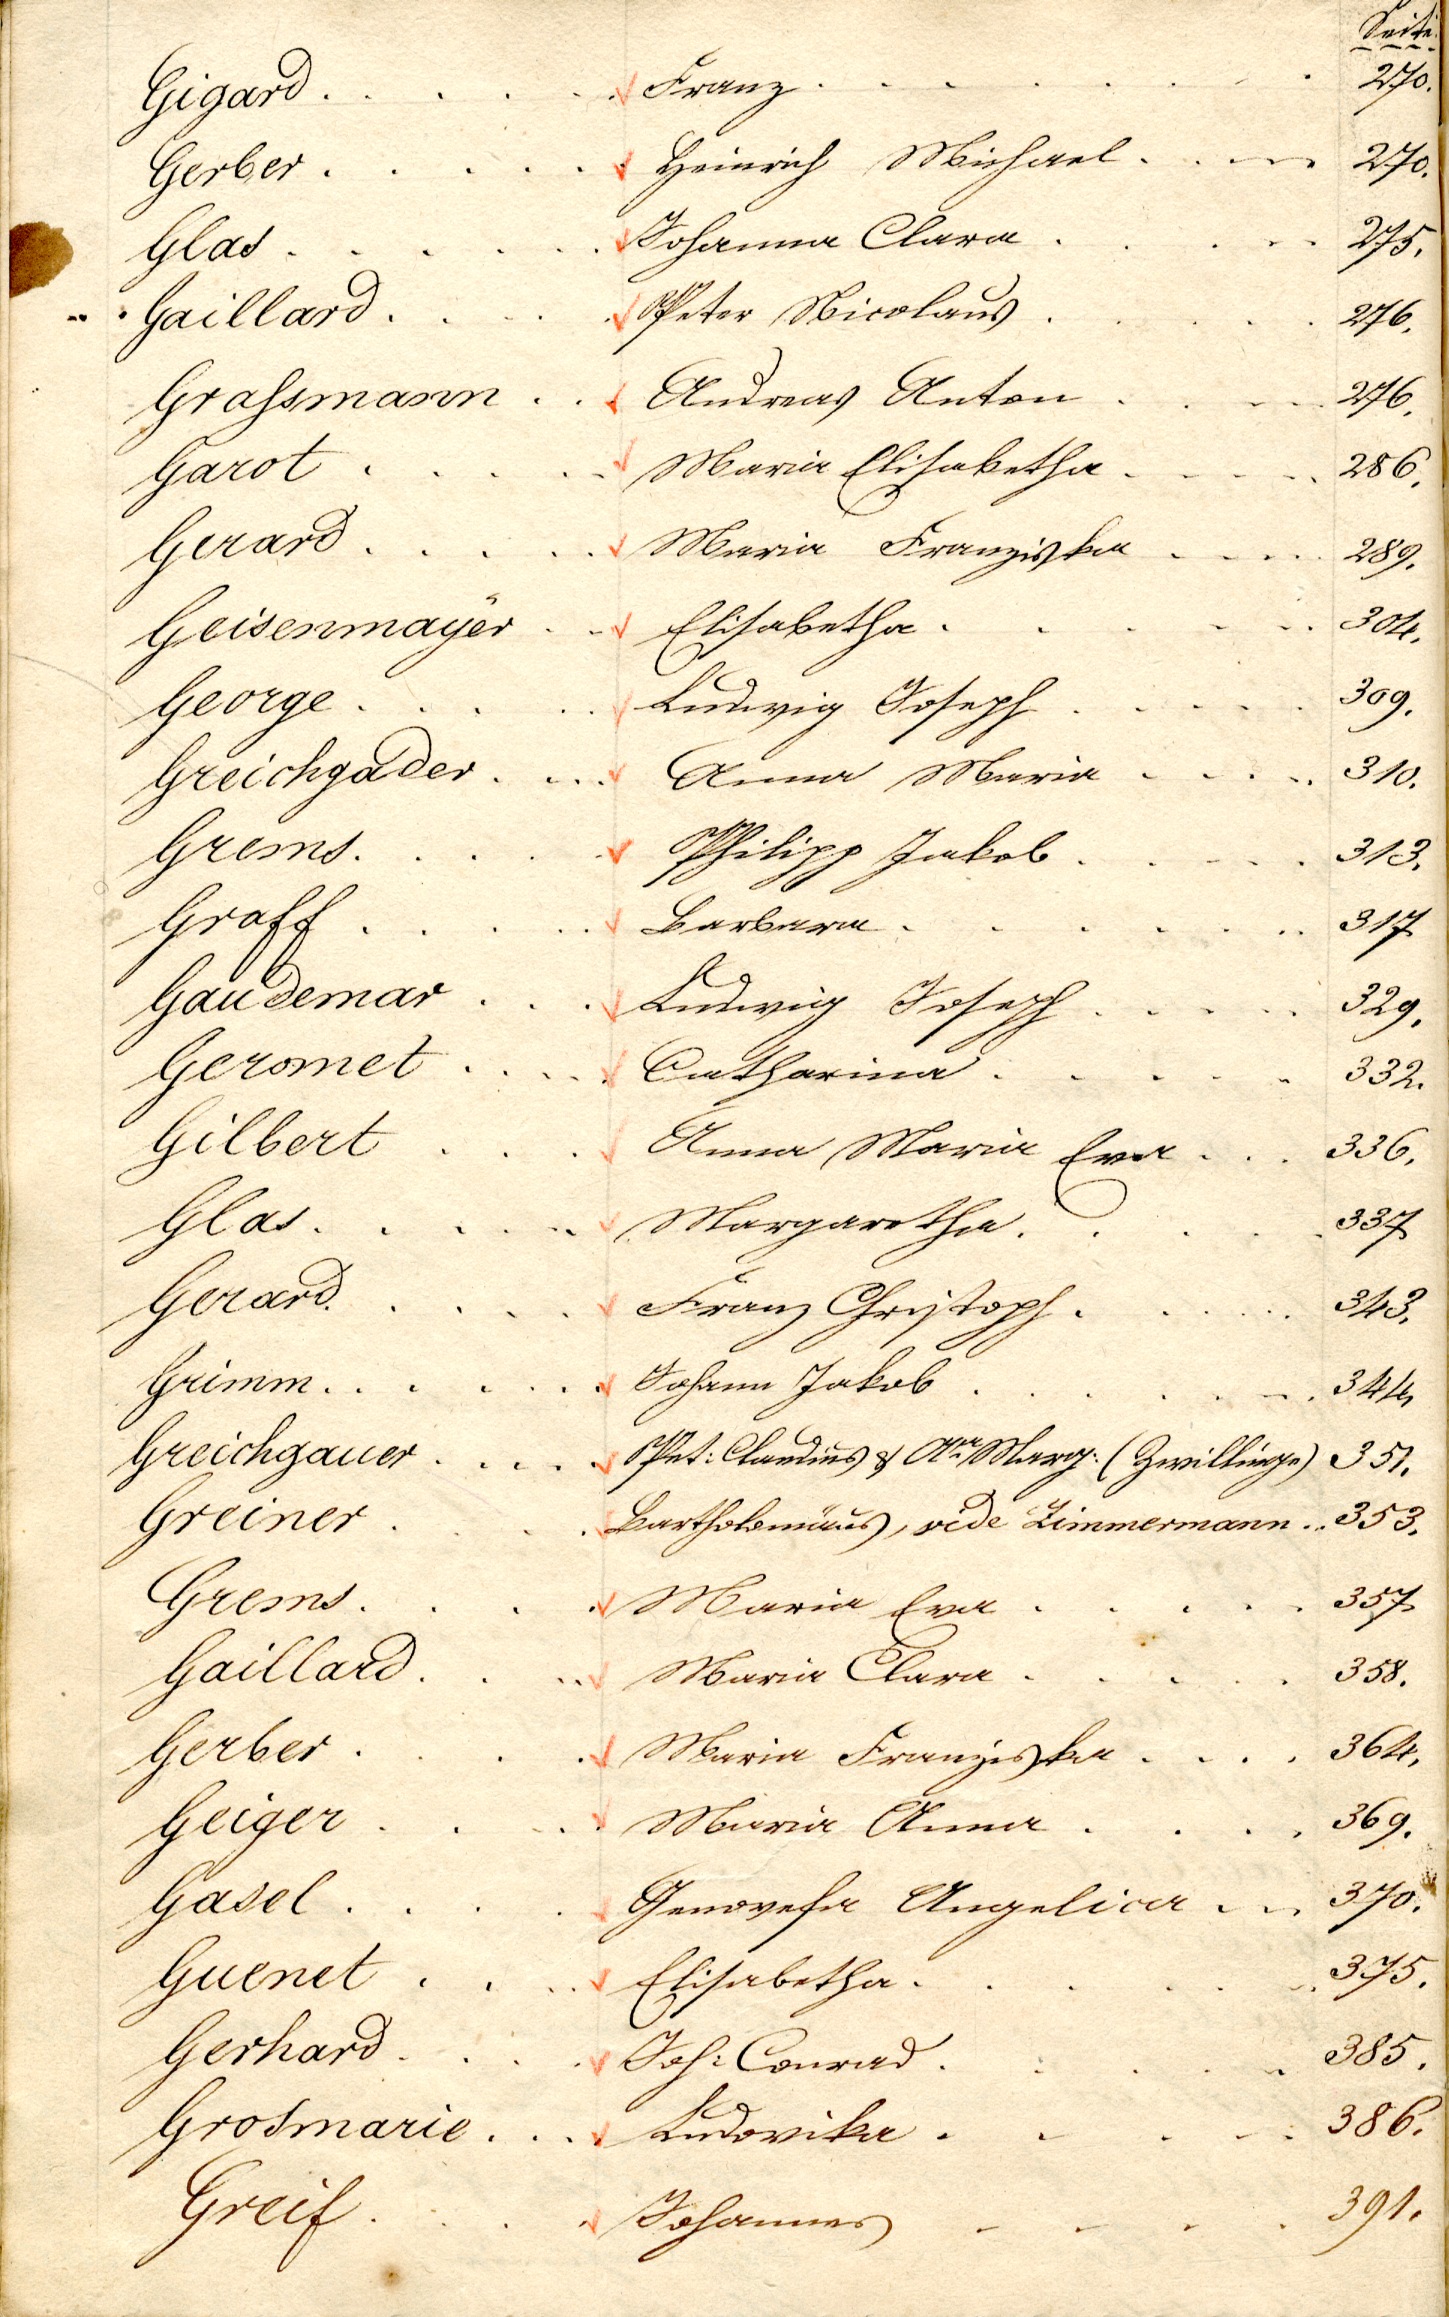 Seite.
Gigard . . . . . Franz . . . . . . . 270.
Gerber . . . . . Heinrich Michael . . . . 270.
Glas . . . . . . Johanna Clara . . . . 275.
Gaillard . . . . Peter Nicolaus . . . . . 276.
Grassmann . . . Andreas Anton . . . . 276.
Garot . . . . . Maria Elisabetha . . . . 286.
Gerard . . . . . Maria Franziska . . . . 289.
Geisenmaÿer . . Elisabetha . . . . . . 304.
George . . . . . Ludwig Joseph . . . . . 309.
Greichgader . . . . Anna Maria . . . . 310.
Grems . . . . . Philipp Jakob . . . . . 313.
Graff . . . . . Barbara . . . . . . . 317
Gaudemar . . . Ludwig Joseph . . . . . 329.
Geromet . . . . Catharina . . . . . 332.
Gilbert . . . Anna Maria Eva . . . 336.
Glas . . . . . Margaretha . . . . . 337
Gerard . . . . . Franz Christoph . . . . 343.
Grimm . . . . . . Johann Jakob . . . . . . 344.
Greichgauer . . . . Pet: Claudius & Ana Marg: (Zwillinge) 351.
Greiner . . . . Bartholomäus, vide Zimmermann .. 353.
Grems . . . . Maria Eva . . . . . 357
Gaillard . . . . Maria Clara . . . . . 358.
Gerber . . . . Maria Franziska . . . . 364.
Geiger . . . . Maria Anna . . . . 369.
Gasel . . . . Genovefa Angelica . . . 370.
Guenet . . . . Elisabetha . . . . . . 375.
Gerhard . . . . Joh: Conrad . . . . . 385.
Grosmarie . . . Ludovika . . . . . 386.
Greif . . . . Johannes . . . . . 391.